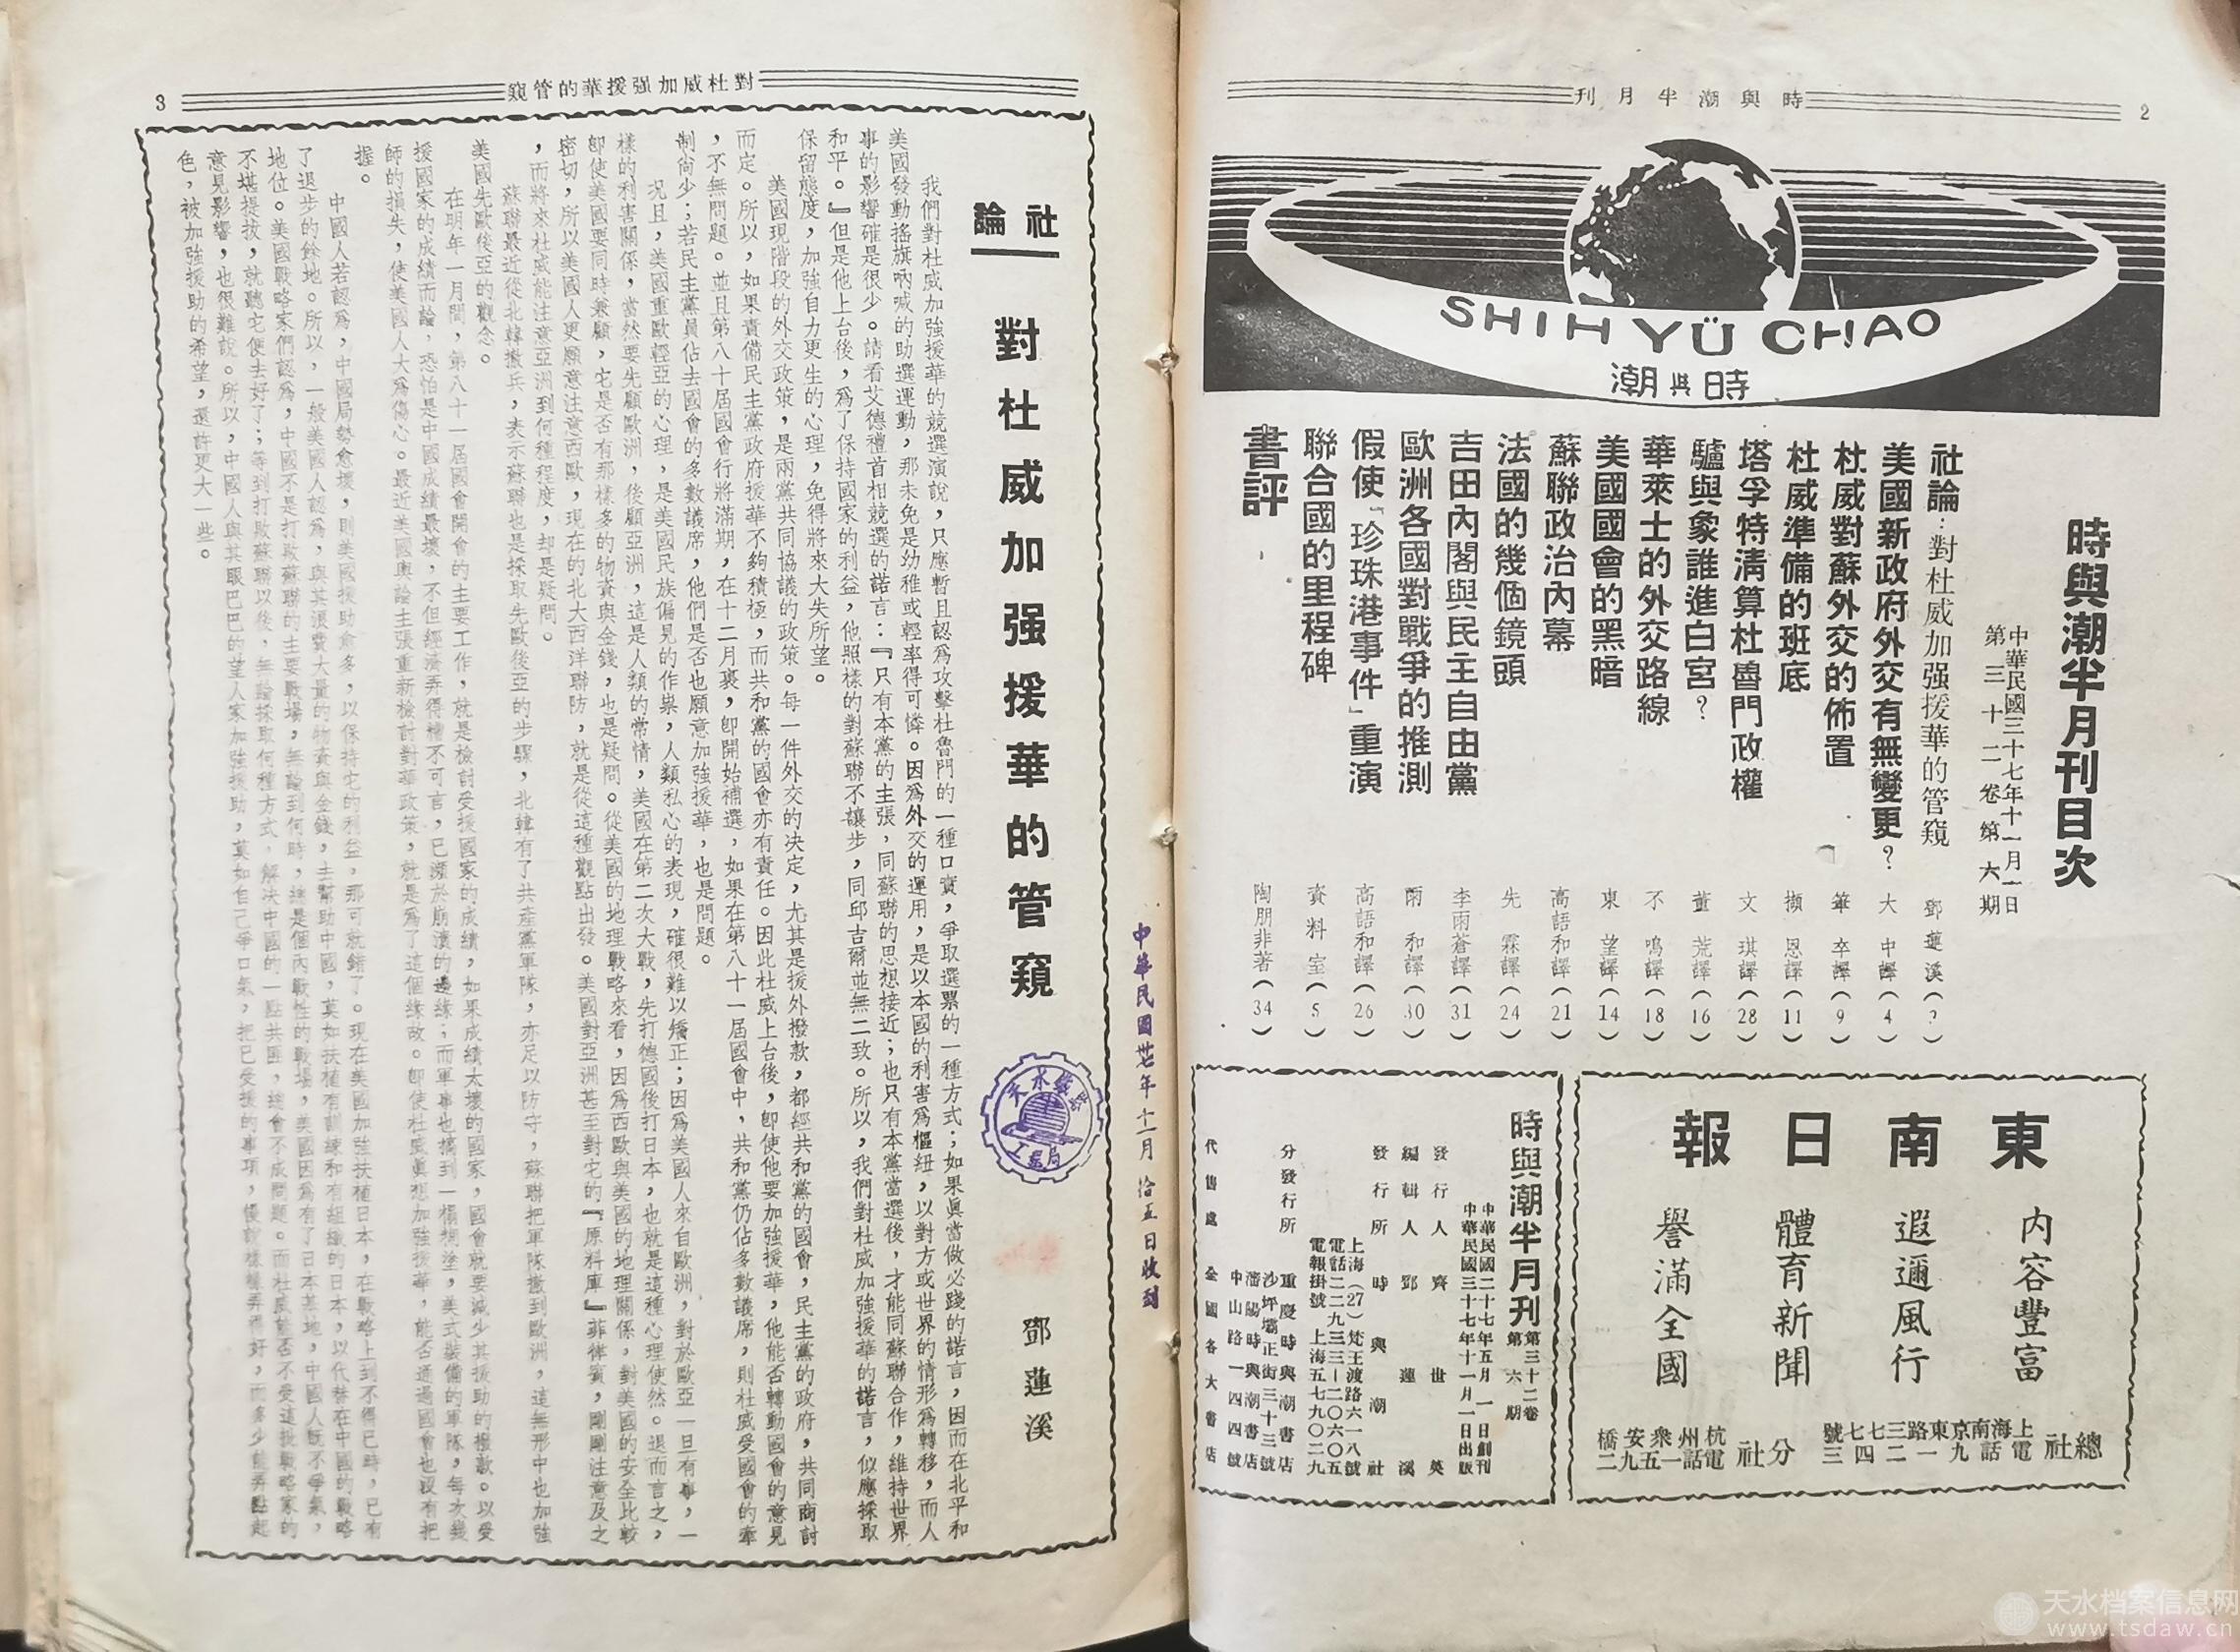 2
時與潮半月刊
SHIH YÜ CHAO
時與潮
時與潮半月刊目次
中華民國三十七年十一月一日
第三十二卷第六期
社論：對杜威加强援華的管窺 鄧蓮溪（3）
美國新政府外交有無變更？ 大中譯（4）
杜威對蘇外交的佈置 筆卒譯（9）
杜威準備的班底 擷恩譯（11）
塔孚特清算杜魯門政權 文琪譯（28）
驢與象誰進白宮？ 董荒譯（16）
華萊士的外交路線 不鳴譯（18）
美國國會的黑暗 東望譯（14）
蘇聯政治內幕 高語和譯（21）
法國的幾個鏡頭 先霖譯（24）
吉田內閣與民主自由黨 李雨蒼譯（31）
歐洲各國對戰爭的推測 雨和譯（30）
假使「珍珠港事件」重演 高語和譯（26）
聯合國的里程碑 資料室（5）
書評 陶朋非著（34）
東南日報
内容豐富
遐邇風行
體育新聞
譽滿全國
總社 上海南京東路三七七號
電話九一二四三
分社 杭州衆安橋
電話一五九二
時與潮半月刊 第三十二卷
第六期
中華民國二十七年五月一日創刊
中華民國三十七年十一月一日出版
發行人 齊世英
編輯人 鄧蓮溪
發行所 時與潮社
上海（27）梵王渡路六一八號
電話二二九三三—二〇六〇五
電報掛號 上海五七九〇二九
分發行所 重慶時與潮書店
沙坪壩正街三十三號
瀋陽時與潮書店
中山路一四四號
代售處 全國各大書店
中華民國卅七年十一月拾五日收到
對杜威加强援華的管窺
3
社論
對杜威加强援華的管窺
天水
工器局
鄧蓮溪
我們對杜威加強援華的競選演說，只應暫且認爲攻擊杜魯門的一種口實，爭取選票的一種方式；如果眞當做必踐的諾言，因而在北平和
美國發動搖旗吶喊的助選運動，那未免是幼稚或輕率得可憐。因爲外交的運用，是以本國的利害爲樞紐，以對方或世界的情形爲轉移，而人
事的影響確是很少。請看艾德禮首相競選的諾言：『只有本黨的主張，同蘇聯的思想接近；也只有本黨當選後，才能同蘇聯合作，維持世界
和平。』但是他上台後，爲了保持國家的利益，他照樣的對蘇聯不讓步，同邱吉爾並無二致。所以，我們對杜威加強援華的諾言，似應採取
保留態度，加強自力更生的心理，免得將來大失所望。
美國現階段的外交政策，是兩黨共同協議的政策。每一件外交的决定，尤其是援外撥款，都經共和黨的國會，民主黨的政府，共同商討
而定。所以，如果責備民主黨政府援華不夠積極，而共和黨的國會亦有責任。因此杜威上台後，卽使他要加強援華，他能否轉動國會的意見
，不無問題。並且第八十屆國會行將滿期，在十二月裏，卽開始補選，如果在第八十一屆國會中，共和黨仍佔多數議席，則杜威受國會的牽
制尙少；若民主黨員佔去國會的多數議席，他們是否也願意加強援華，也是問題。
況且，美國重歐輕亞的心理，是美國民族偏見的作祟，人類私心的表現，確很難以矯正；因爲美國人來自歐洲，對於歐亞一旦有事，一
樣的利害關係，當然要先顧歐洲，後顧亞洲，這是人類的常情，美國在第二次大戰，先打德國後打日本，也就是這種心理使然。退而言之，
卽使美國要同時兼顧，它是否有那樣多的物資與金錢，也是疑問。從美國的地理戰略來看，因爲西歐與美國的地理關係，對美國的安全比較
密切，所以美國人更願意注意西歐，現在的北大西洋聯防，就是從這種觀點出發。美國對亞洲甚至對它的『原料庫』菲律賓，剛剛注意及之
，而將來杜威能注意亞洲到何種程度，却是疑問。
蘇聯最近從北韓撤兵，表示蘇聯也是採取先歐後亞的步驟，北韓有了共產黨軍隊，亦足以防守，蘇聯把軍隊撤到歐洲，這無形中也加強
美國先歐後亞的觀念。
在明年一月間，第八十一屆國會開會的主要工作，就是檢討受援國家的成績，如果成績太壞的國家，國會就要減少其援助的撥款。以受
援國家的成績而論，恐怕是中國成績最壞，不但經濟弄得糟不可言，已瀕於崩潰的邊緣；而軍事也搞到一榻糊塗，美式裝備的軍隊，每次幾
師的損失，使美國人大爲傷心。最近美國輿論主張重新檢討對華政策，就是爲了這個緣故。卽使杜威眞想加強援華，能否通過國會也沒有把
握。
中國人若認爲，中國局勢愈壞，則美國援助愈多，以保持它的利益，那可就錯了。現在美國加強扶植日本，在戰略上到不得已時，已有
了退步的餘地。所以，一般美國人認爲，與其浪費大量的物資與金錢，去幫助中國，莫如扶植有訓練和有組織的日本，以代替在中國的戰略
地位。美國戰略家們認爲，中國不是打敗蘇聯的主要戰場，無論到何時，總是個內戰性的戰場，美國因爲有了日本基地，中國人既不爭氣，
不堪提拔，就聽它便去好了；等到打敗蘇聯以後，無論採取何種方式，解決中國的一點共匪，總會不成問題。而杜威能否不受這批戰略家的
意見影響，也很難說。所以，中國人與其眼巴巴的望人家加強援助，莫如自己爭口氣，把已受援的事項，慢說樣樣弄得好，而多少能弄點起
色，被加強援助的希望，還許更大一些。
天水档案信息网
www.tsdaw.cn